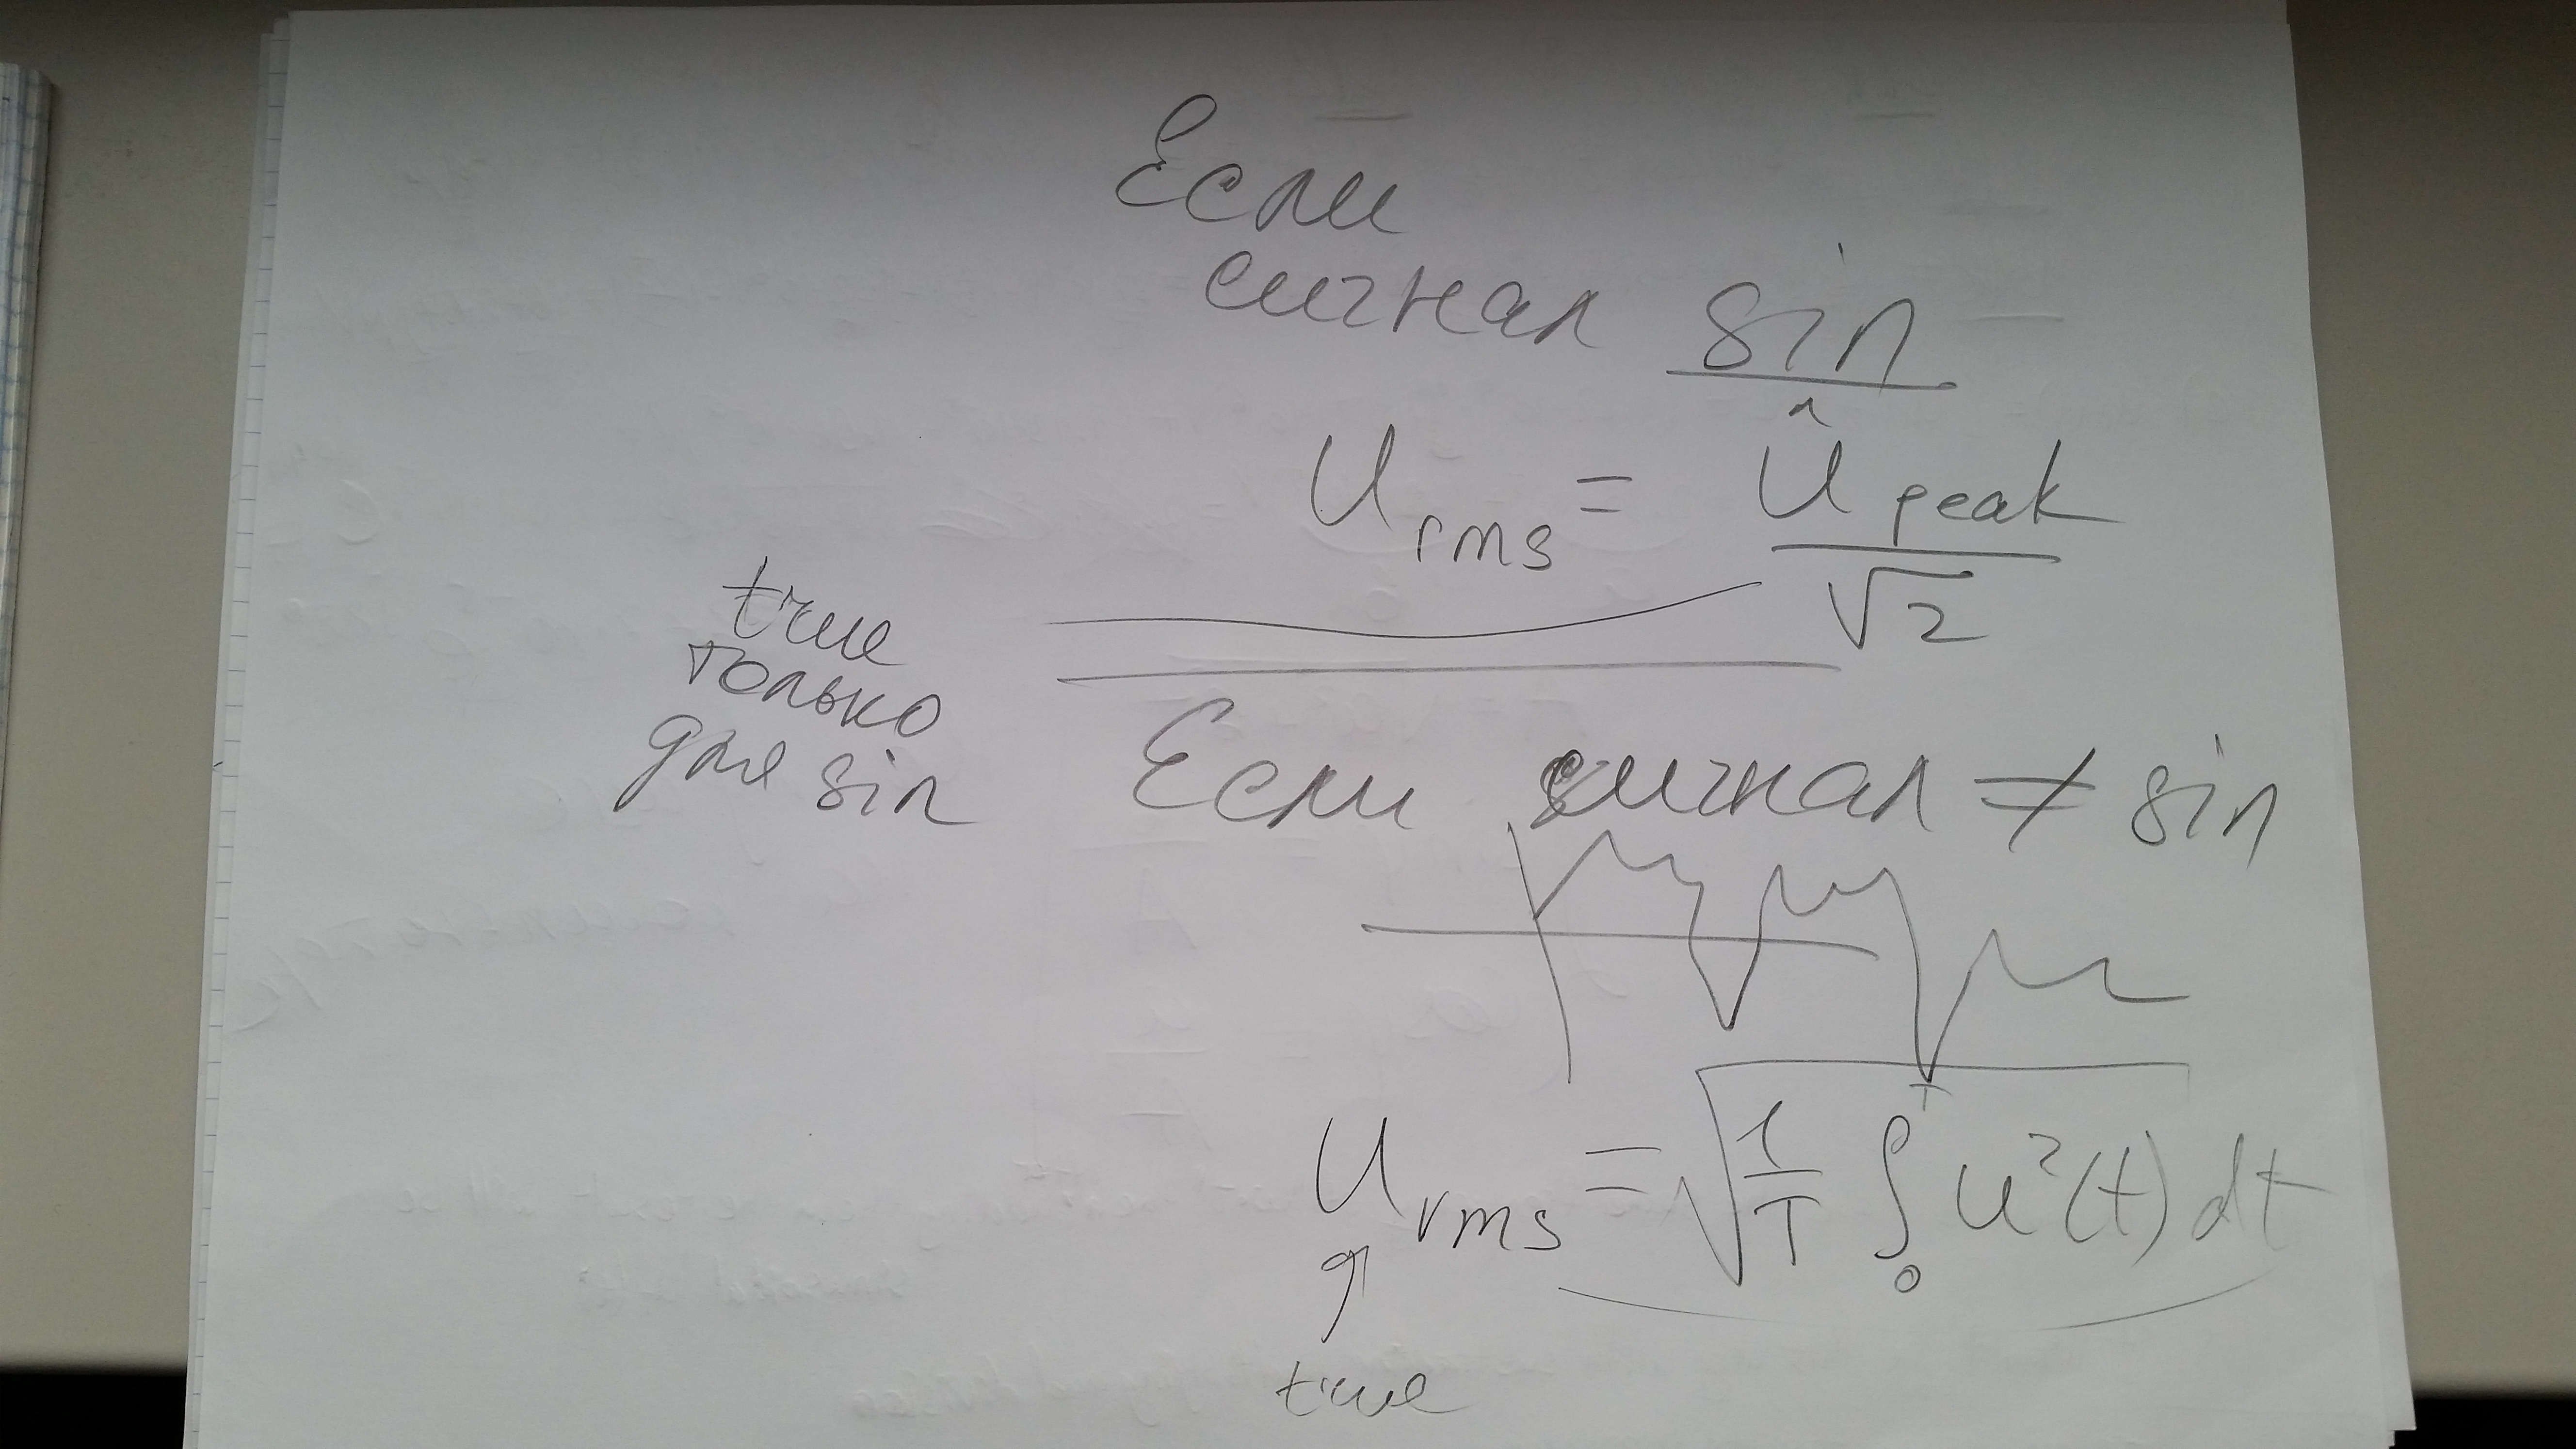 Если
сигнал sin
U rms = û peak / √2
true
только
для sin
Если сигнал ≠ sin
U rms = √(1/T ∫₀ᵀ u²(t) dt)
true